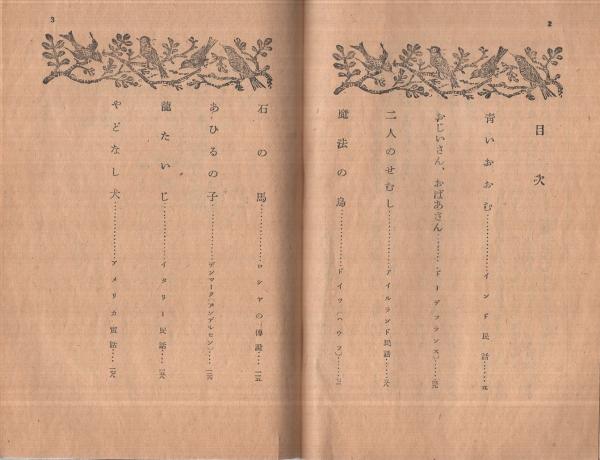 2
目次
青いおおむ………インド民話……
おじいさん、おばあさん……ドーデ(フランス)……
二人のせむし………アイルランド民話……
魔法の鳥………ドイツ(ハウフ)……
3
石の馬………ロシヤの傳說……
あひるの子………デンマーク(アンデルセン)……
龍たいじ………イタリー民話……
やどなし犬………アメリカ實話……